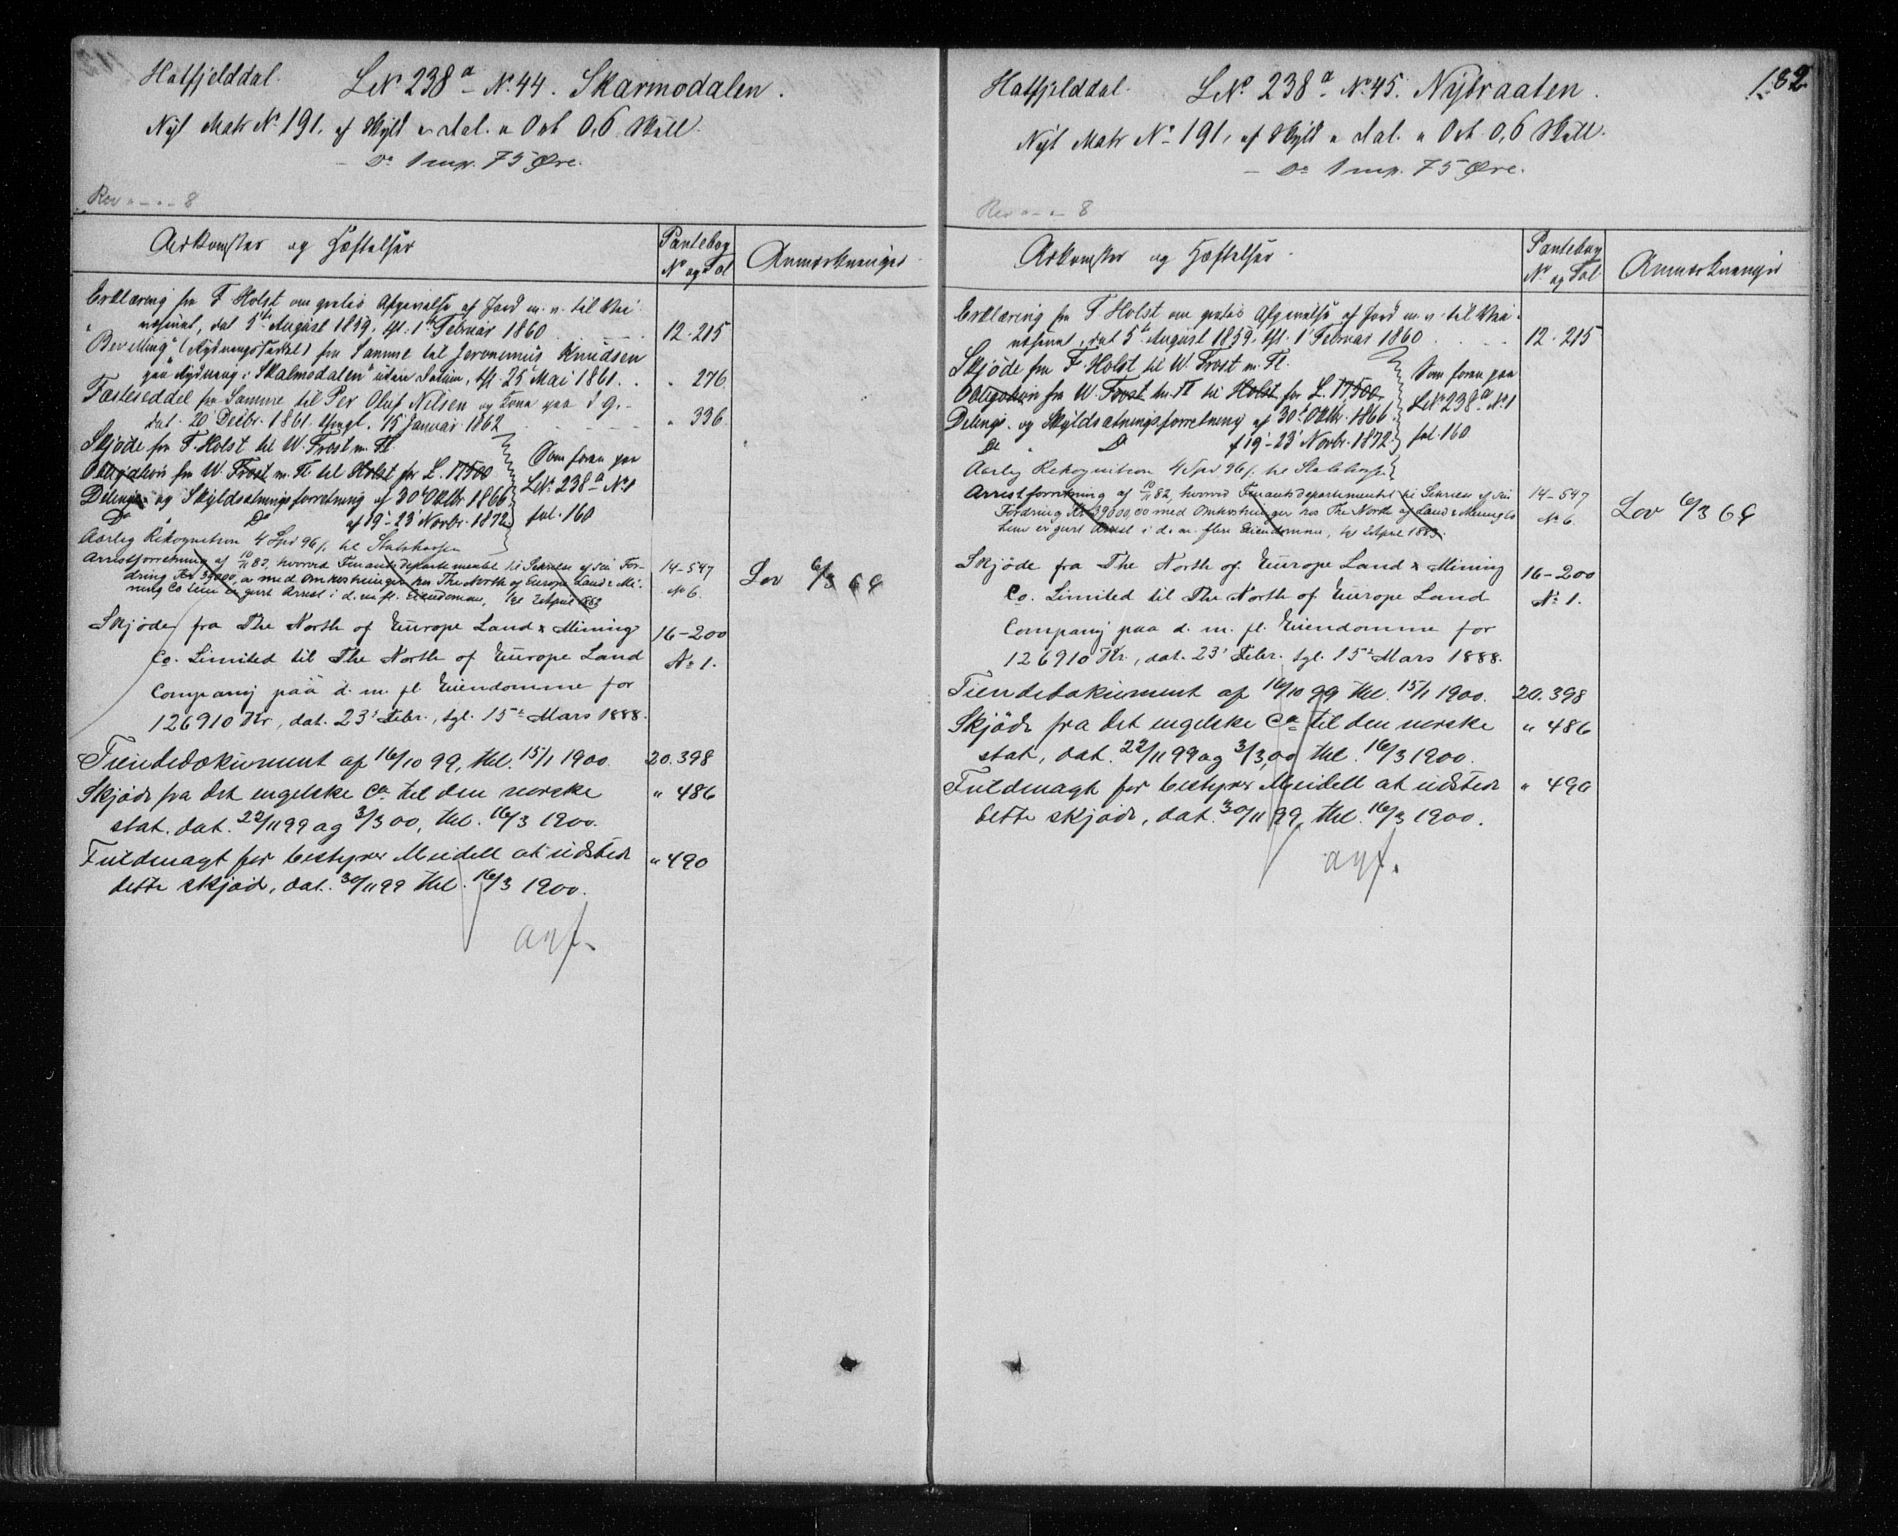 Hatfjelddal. LNr 238a - No 44. Skarmodalen.
Nyt Matr No 191, af Skyld " dal. " Ort 0,6 Skill.
- Do 1 mp. 75 Øre.
Rev " - " - 8
Adkomster og Hæftelser
Pantebog
No og Fol
Anmærkninger
Erklæring fra F Holst om gratis Afgivelse af Jord m. v. til Vei
væsenet, dat 5te August 1859, tgl. 1te Februar 1860
12.215
Bevilling (Rydningsseddel) fra Samme til Jeronimus Knudsen
paa Rydning i "Skalmodalen" uden Datum, tgl. 25 Mai 1861.
" 276
Fæsteseddel fra Samme til Per Oluf Nilsen og Kone paa d. g.
dat. 20 Decbr. 1861. thingl. 15 Januar 1862
" 336
Skjøde fra F. Holst til W. Frost m. Fl.
Obligation fra W. Frost m. Fl. til Holst for L. 17500
Delings- og Skyldsætningsforretning af 30 Oktbr 1866
Do " Do af 19 - 23 Novbr. 1872
Som foran paa
LNr 238a No 1
fol. 160
Aarlig Rekognition 4 Spd 96 s. til Statskassen
Arrestforretning af 10/11 82, hvorved Finantsdepartementet til Sikkerhed af sin For-
dring Kr 39000,00 med Omkostninger hos The North of Europe Land & Mi-
ning Co Lim er gjort Arrest i d. m. fl. Eiendomme, tgl 2 April 1883
14-547
No 6.
Lov 6/3 69
Skjøde fra The North of Europe Land & Mining
Co. Limited til The North of Europe Land
Company paa d. m. fl. Eiendomme for
126910 Kr., dat. 23' Febr., tgl. 15de Mars 1888.
16-200
No 1.
Tiendedokument af 16/10 99, thl. 15/1 1900.
20.398
Skjøde fra det engelske Co til den norske
stat, dat. 22/11 99 og 3/3 00, thl. 16/3 1900.
" 486
Fuldmagt for bestyrer Meidell at udstede
dette skjøde, dat. 30/11 99 thl. 16/3 1900.
" 490
avf.
182
Hatfjelddal. LNo. 238a No 45. Nybraaten.
Nyt Matr No 191, af Skyld " dal. " Ort 0,6 Skill.
- Do 1 mp. 75 Øre.
Rev " - " - 8
Adkomster og Hæftelser.
Pantebog
No og Fol
Anmærkninger
Erklæring fra F Holst om gratis Afgivelse af Jord m. v. til Vei-
væsenet, dat 5te August 1859, tgl. 1 Februar 1860
12.215
Skjøde fra F. Holst til W. Frost m. Fl.
Obligation fra W. Frost m. Fl til Holst for L. 17500
Delings- og Skyldsætningsforretning af 30 Oktbr. 1866
Do " Do af 19 - 23 Novbr. 1872
Som foran paa
LNr 238a No 1
fol. 160
Aarlig Rekognition 4 Spd 96 s. til Statskassen
Arrestforretning af 10/11 82, hvorved Finantsdepartementet til Sikkerhed af sin
Fordring Kr 39000,00 med Omkostninger hos The North of Land & Mining Co
Lim er gjort Arrest i d. m. flere Eiendomme, tgl 2 April 1883.
14-547
No 6
Lov 6/3 69
Skjøde fra The North of Europe Land & Mining
Co. Limited til The North of Europe Land
Company paa d. m. fl. Eiendomme for
126910 Kr., dat. 23' Febr. tgl. 15de Mars 1888.
16-200
No 1.
Tiendedokument af 16/10 99 thl. 15/1 1900.
20.398
Skjøde fra det engelske Co til den norske
stat, dat. 22/11 99 og 3/3,00 thl. 16/3 1900.
" 486
Fuldmagt for bestyrer Meidell at udstede
dette skjøde, dat. 30/11 99, thl. 16/3 1900.
" 490
avf.